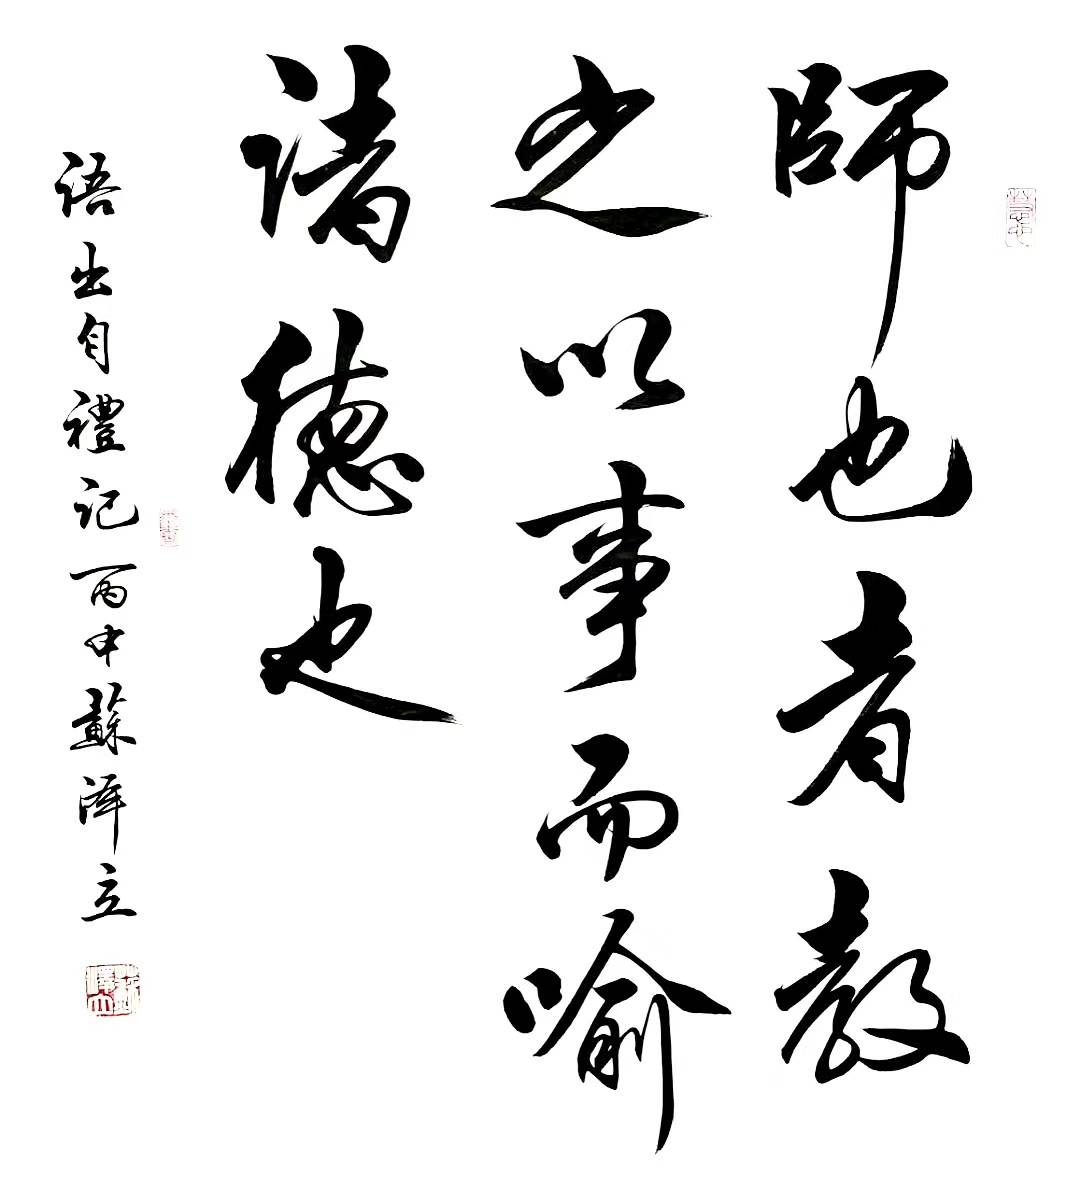 師也者教
之以事而喻
诸德也
语出自禮记丙申蘇泽立